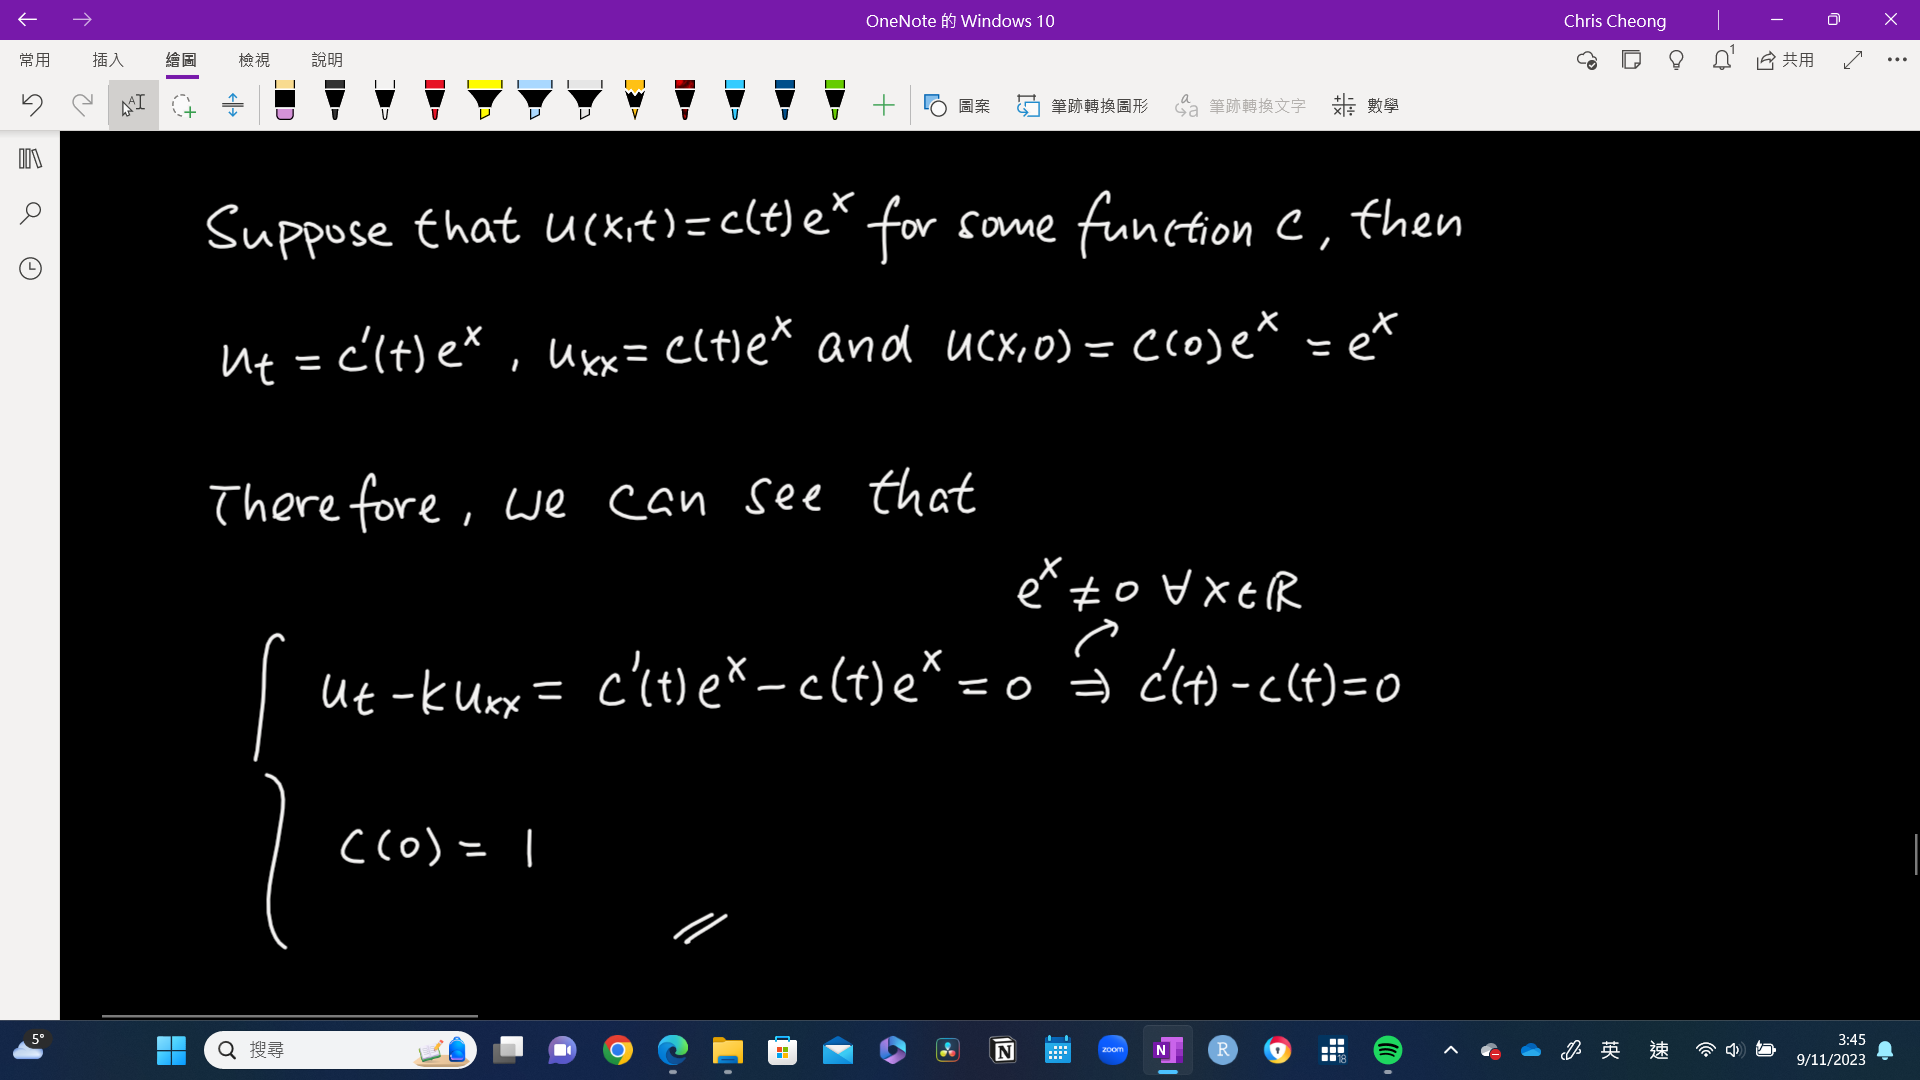 OneNote 的 Windows 10
Chris Cheong
常用 插入 繪圖 檢視 說明
1
共用
圖案 筆跡轉換圖形 筆跡轉換文字 數學
Suppose that u(x,t)=c(t)e^x for some function c, then
u_t = c'(t)e^x, u_xx = c(t)e^x and u(x,0) = c(0)e^x = e^x
Therefore, we can see that
e^x ≠ 0 ∀ x ∈ ℝ
u_t - k u_xx = c'(t)e^x - c(t)e^x = 0 ⇒ c'(t) - c(t) = 0
c(0) = 1
5°
搜尋
zoom
N
R
18
英
速
3:45
9/11/2023